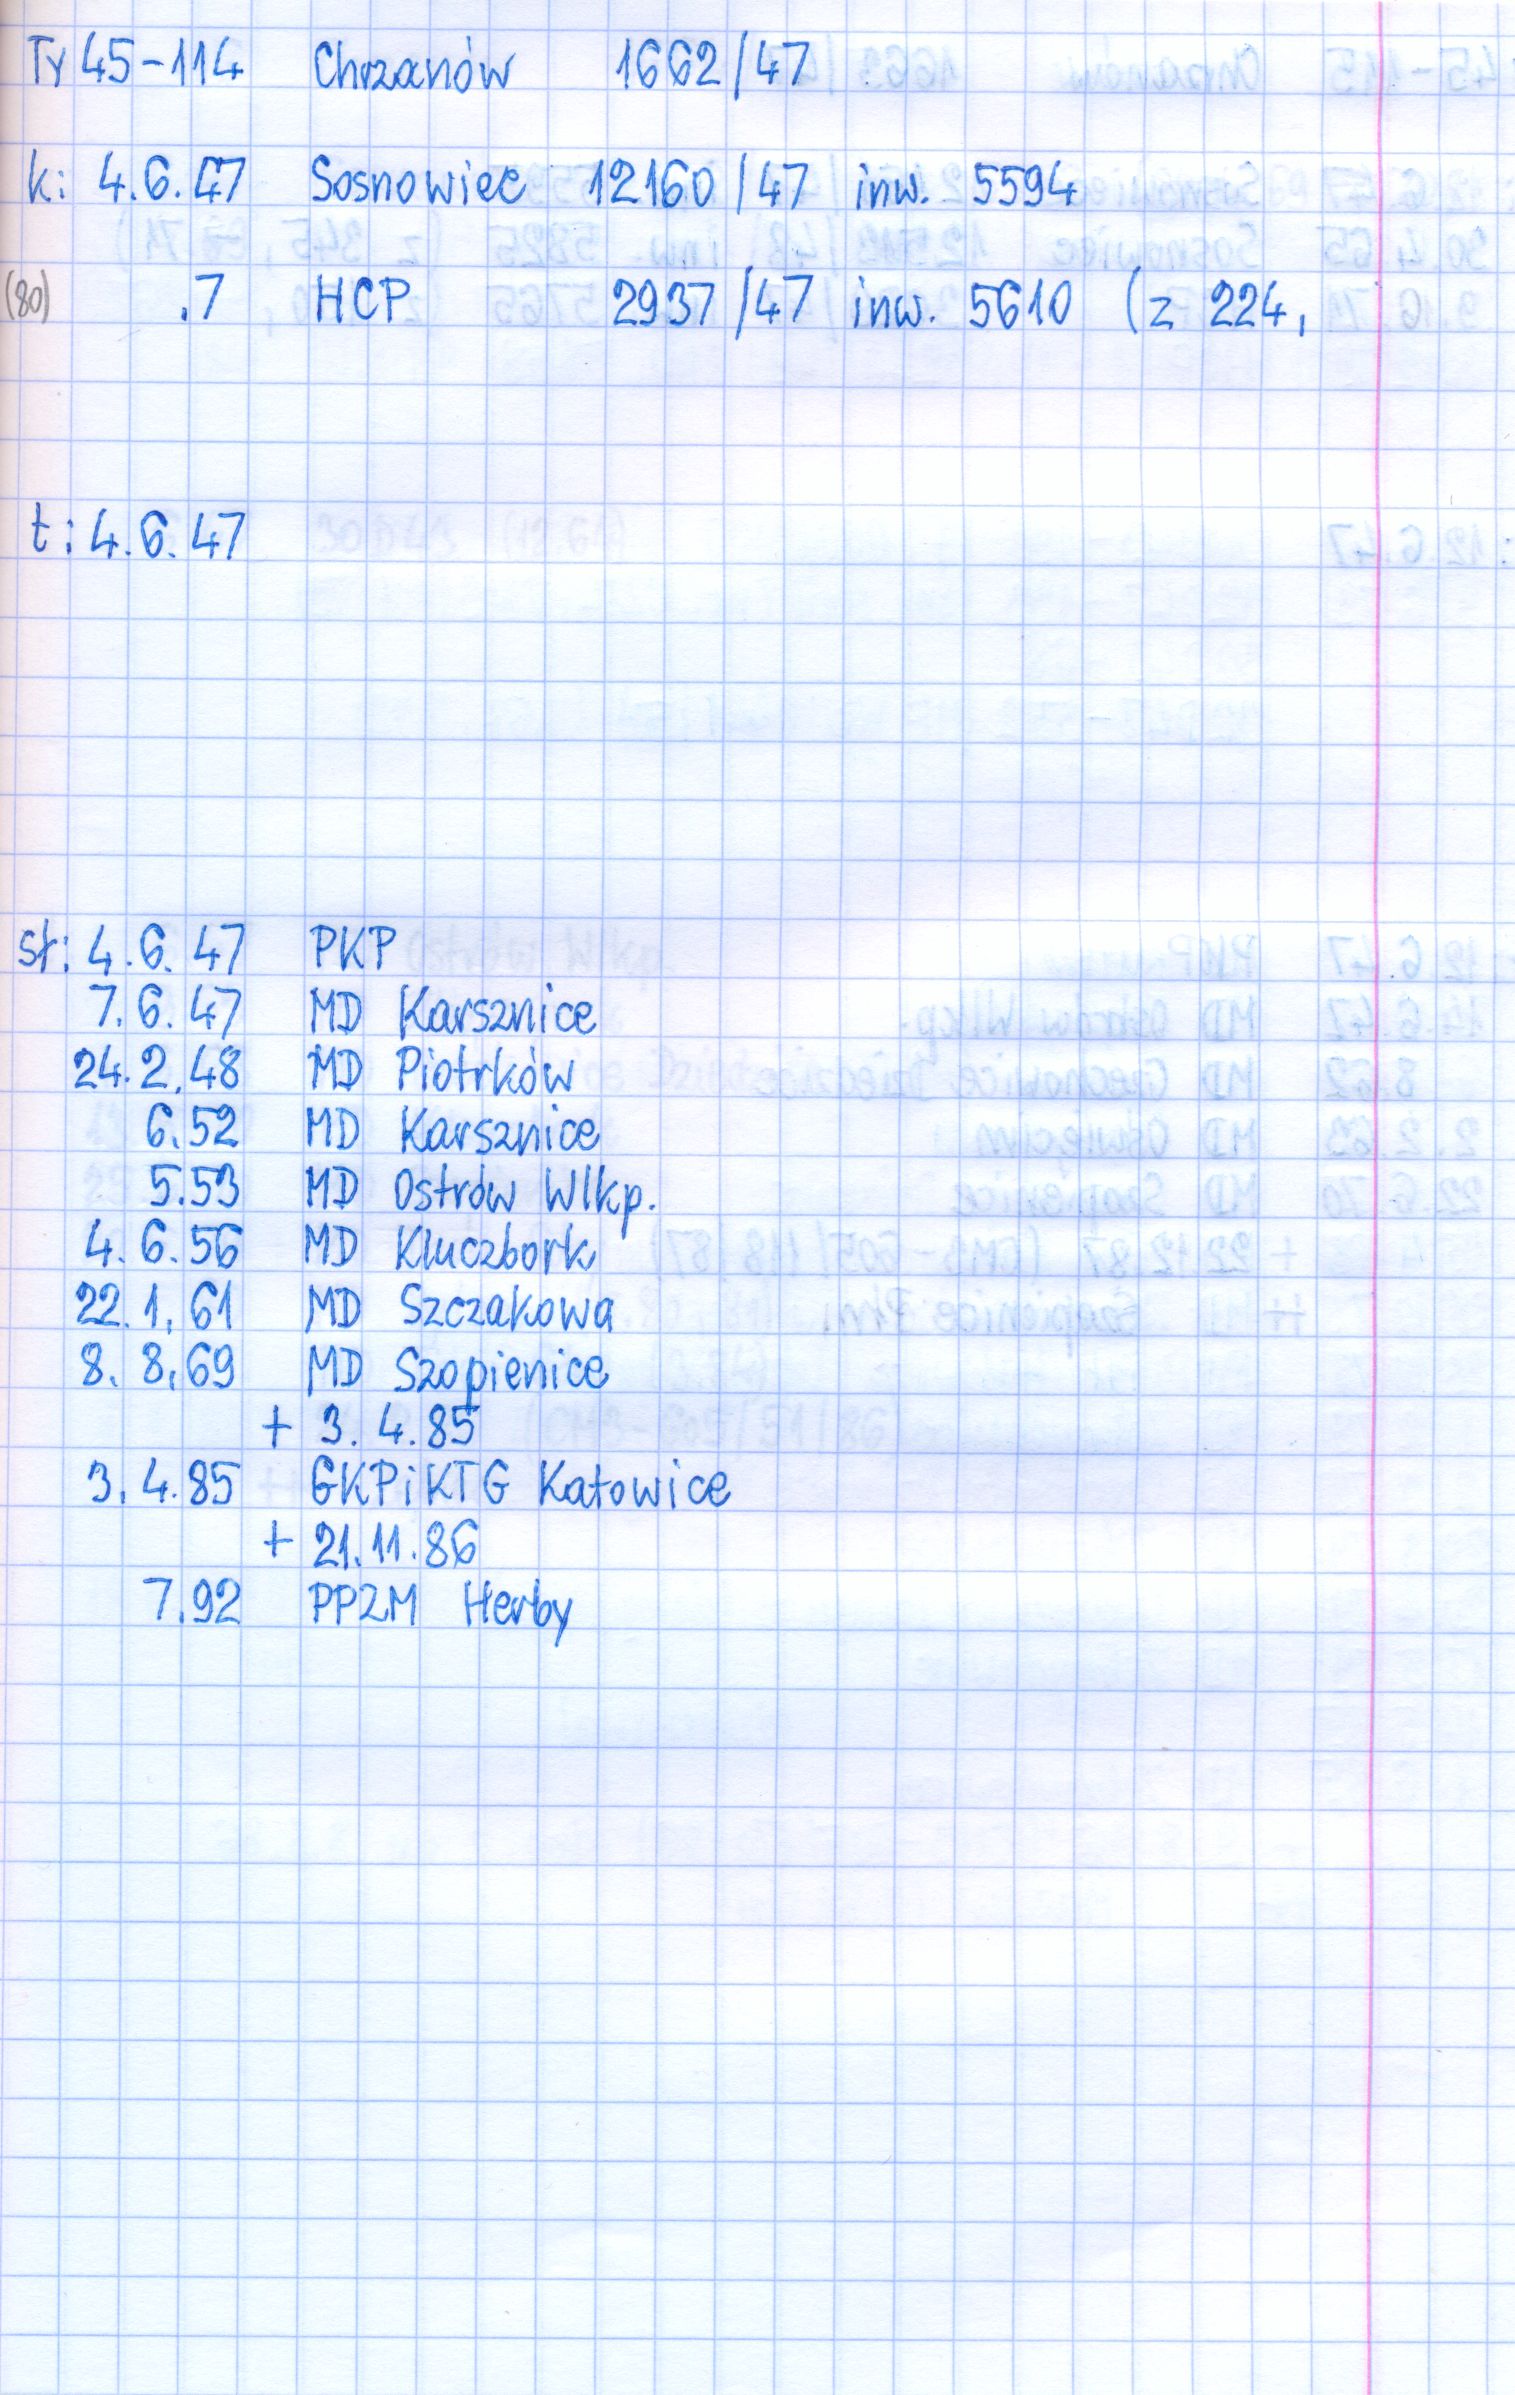 Ty 45-114 Chrzanów 1662/47
k: 4.6.47 Sosnowiec 12160/47 inw. 5594
(80) .7 HCP 2937/47 inw. 5610 (z 224,
t: 4.6.47
st: 4.6.47 PKP
7.6.47 MD Karsznice
24.2.48 MD Piotrków
6.52 MD Karsznice
5.53 MD Ostrów Wlkp.
4.6.56 MD Kluczbork
22.1.61 MD Szczakowa
8.8.69 MD Szopienice
+ 3.4.85
3.4.85 GKPiKTG Katowice
+ 21.11.86
7.92 PPZM Herby